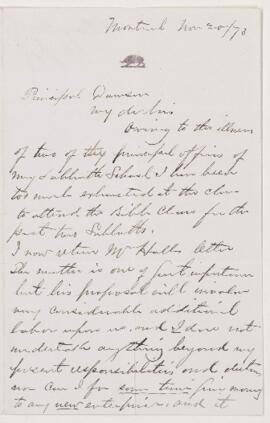 Montreal Nov 20/73
Principal Dawson
My dear Sir
Owing to the illness
of two of the principal officers of
my Sabbath School I have been
too much exhausted at the close
to attend the Bible Class for the
past two Sabbaths.
I now return Mr Halls letter
The matter is one of importance
but his proposal will involve
very considerable additional
labor upon us, and I dare not
undertake anything beyond my
present responsibilities and duties
nor can I for some time give money
to any new enterprise and it